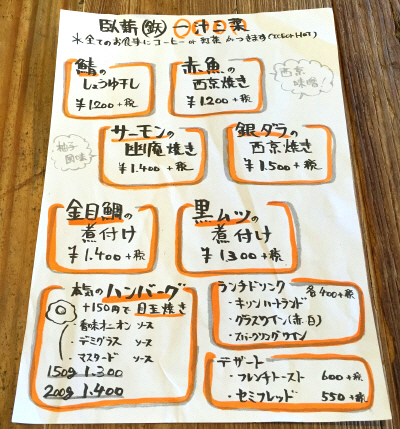 臥薪(鉄) 一汁三菜
※全てのお食事にコーヒーか紅茶がつきます(ICEor HOT)
鯖の
しょうゆ干し
¥1.200 +税
赤魚の
西京焼き
¥1.200 +税
西京
味噌!
サーモンの
幽庵焼き
¥1.400 +税
柚子
風味
銀ダラの
西京焼き
¥1.500 +税
金目鯛の
煮付け
¥1.400 +税
黒ムツの
煮付け
¥1300 +税
本気のハンバーグ
+150円で目玉焼き
・香味オニオン ソース
・デミグラス ソース
・マスタード ソース
150g 1.300
200g 1.400
ランチドリンク 各400+税
・キリンハートランド
・グラスワイン(赤.白)
・スパークリングワイン
デザート
・フレンチトースト 600+税
・セミフレッド 550+税